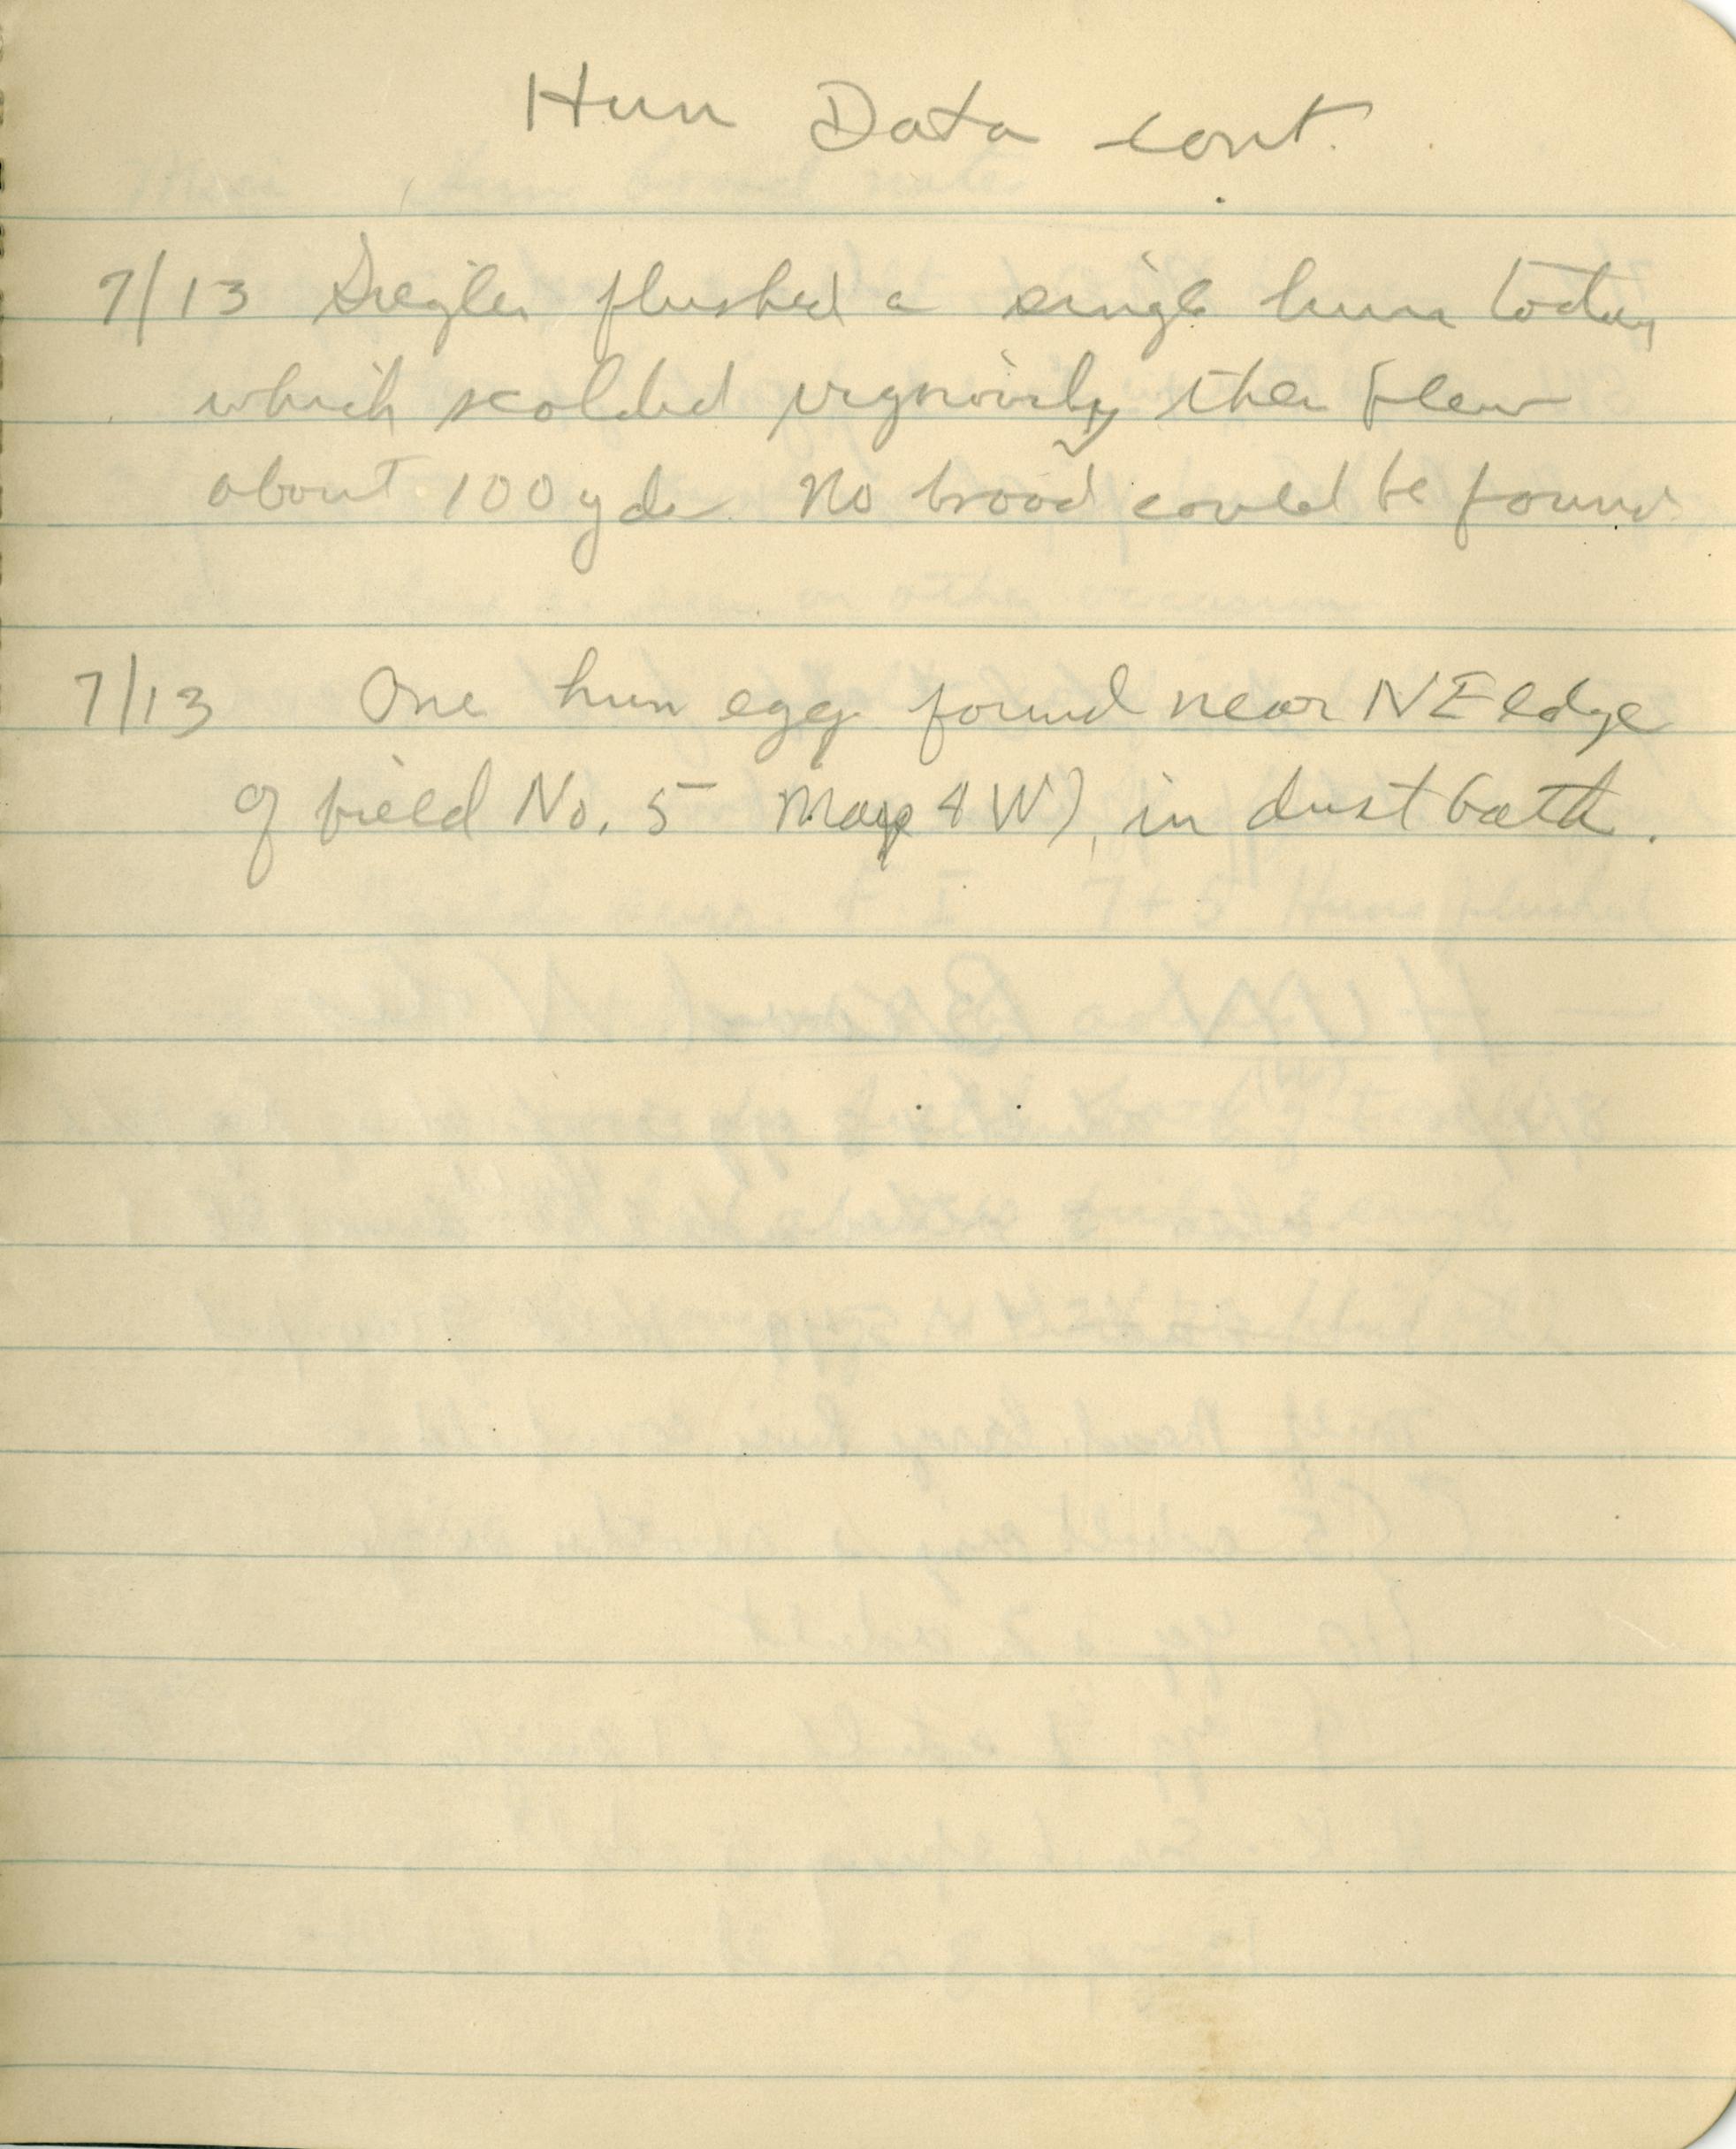 Hun Data cont.
7/13 Siegler flushed a single hun today
which scolded vigorously then flew
about 100 yds. No brood could be found
7/13 One hun egg found near NE edge
of field No. 5 Map 4 W), in dust bath.